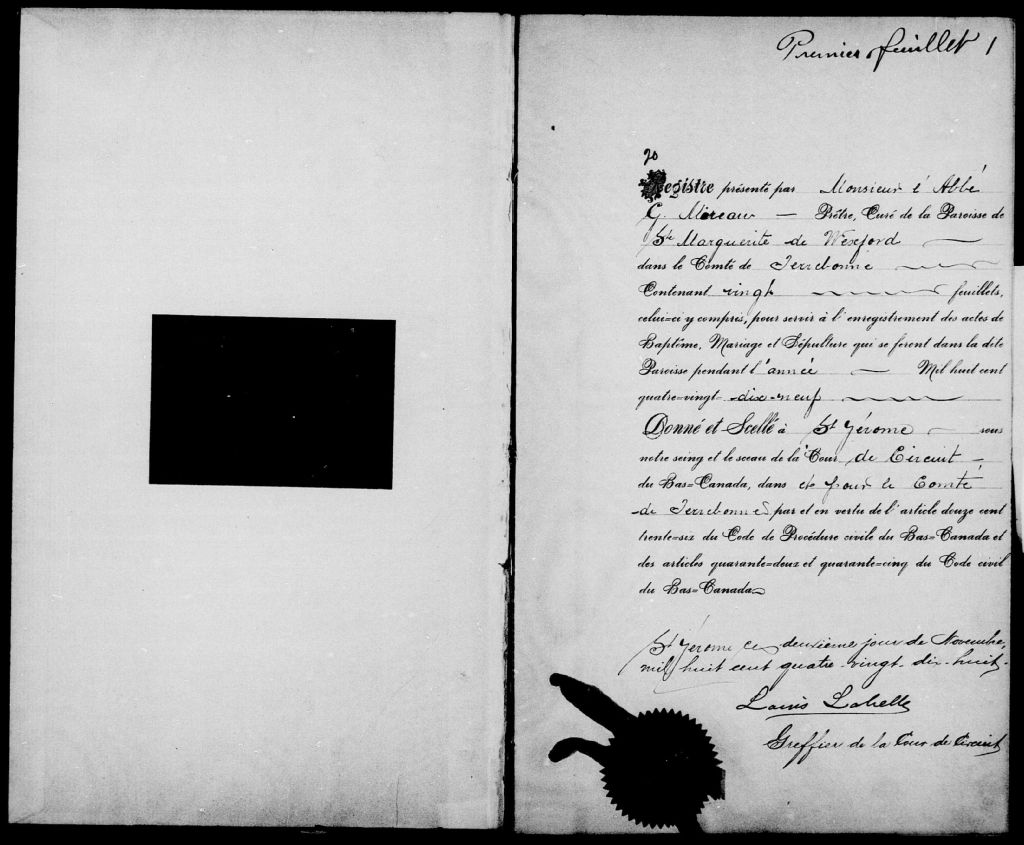 Premier feuillet 1
20
Registre présenté par Monsieur l'Abbé
G. Moreau — Prêtre, Curé de la Paroisse de
Ste Marguerite de Wexford —
dans le Comté de Terrebonne
Contenant vingt feuillets,
celui=ci y compris, pour servir à l'enregistrement des actes de
Baptême, Mariage et Sépulture qui se feront dans la dite
Paroisse pendant l'année — Mil huit cent
quatre=vingt-dix-neuf
Donné et Scellé à St Jérome — sous
notre seing et le sceau de la Cour de Circuit —
du Bas=Canada, dans et pour le Comté
de Terrebonne par et en vertu de l'article douze cent
trente=six du Code de Procédure civile du Bas=Canada et
des articles quarante=deux et quarante=cinq du Code civil
du Bas=Canada
St Jérome ce deuxième jour de Novembre,
mil huit cent quatre-vingt-dix-huit.
Louis Labelle
Greffier de la Cour de Circuit